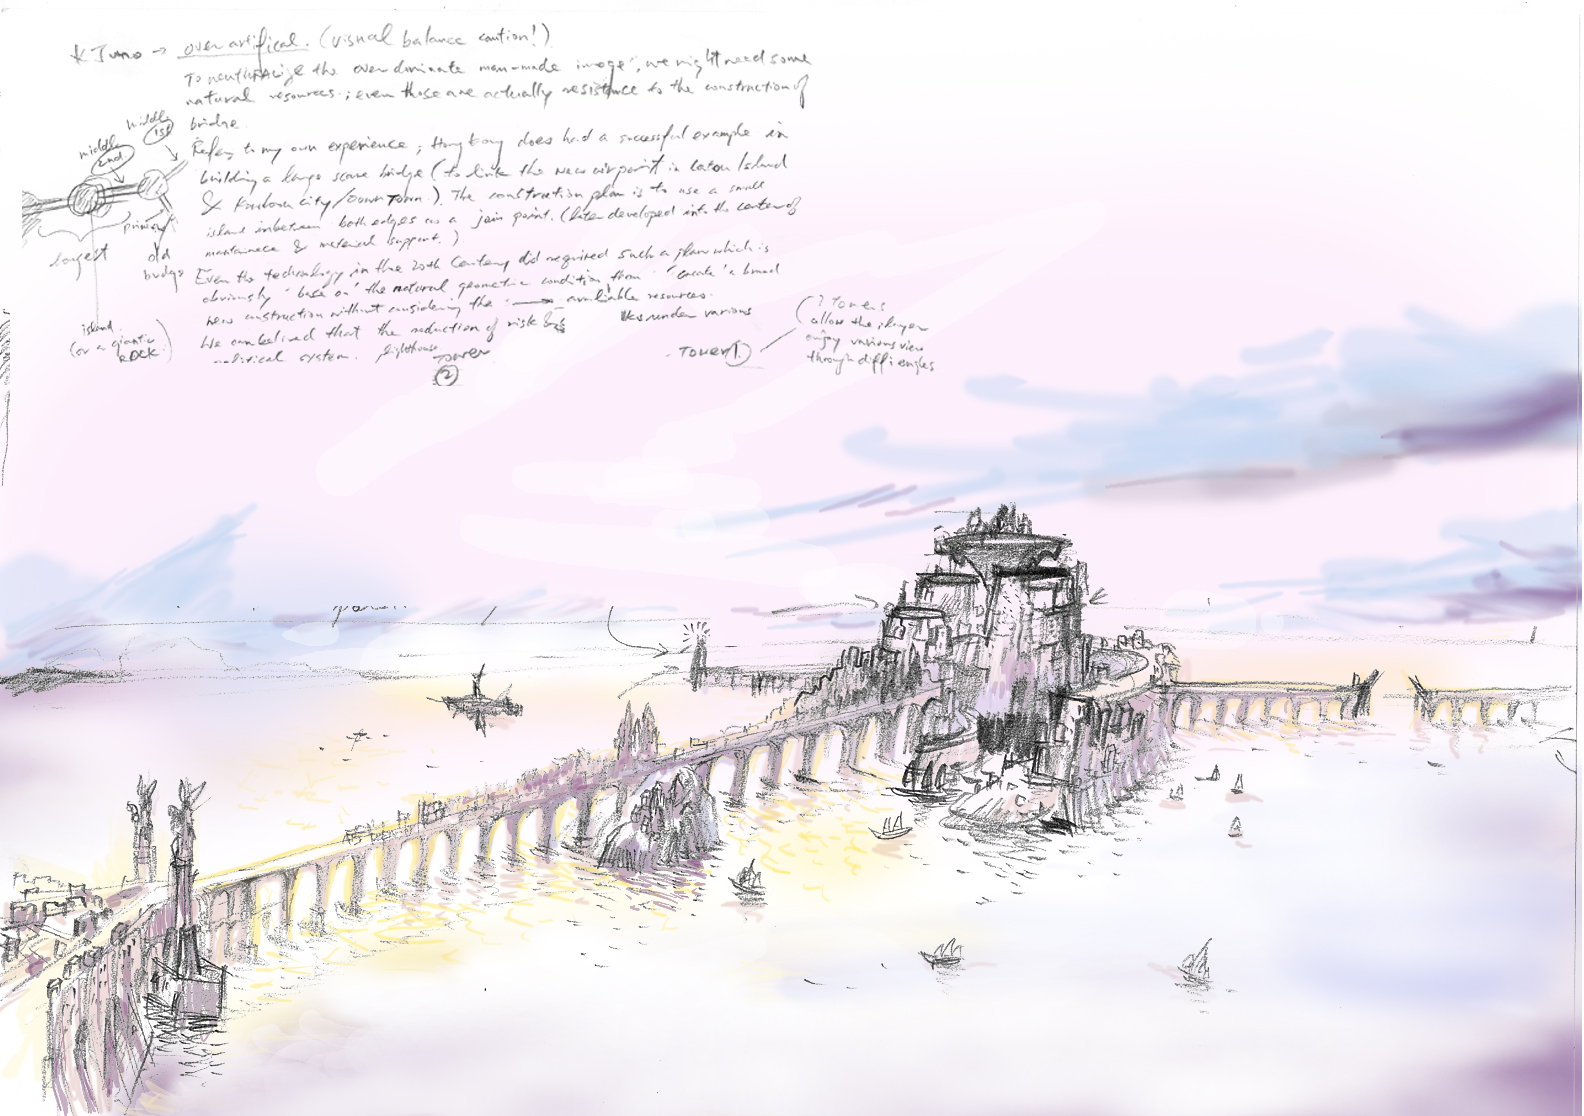 * Juno → over artifical. (visual balance caution!)
To neuthralize the over dominate man-made image; we might need some
natural resources; even those are actually resistence to the construction of
bridge.
Refer to my own experience; Hong Kong does had a successful example in
building a large scare bridge (to link the new airport in Island
& city/DownTown). The construction plan is to use a small
island inbetween both edges as a join point. (later developed into the center of
& material support.)
Even the technology in the 20th Century did required such a plan which is
obviously "base on" the natural geometric condition, than "create" a brand
new construction without considering the → available resources.
We can belived that the reduction of risk & under various
political system.
lighthouse
Tower
2
Tower 1
(2 Towers
allow the player
enjoy various view
through diff. engles
middle
1st
middle
2nd
primary
longest
old
bridge
island
(or a giantic
ROCK.)